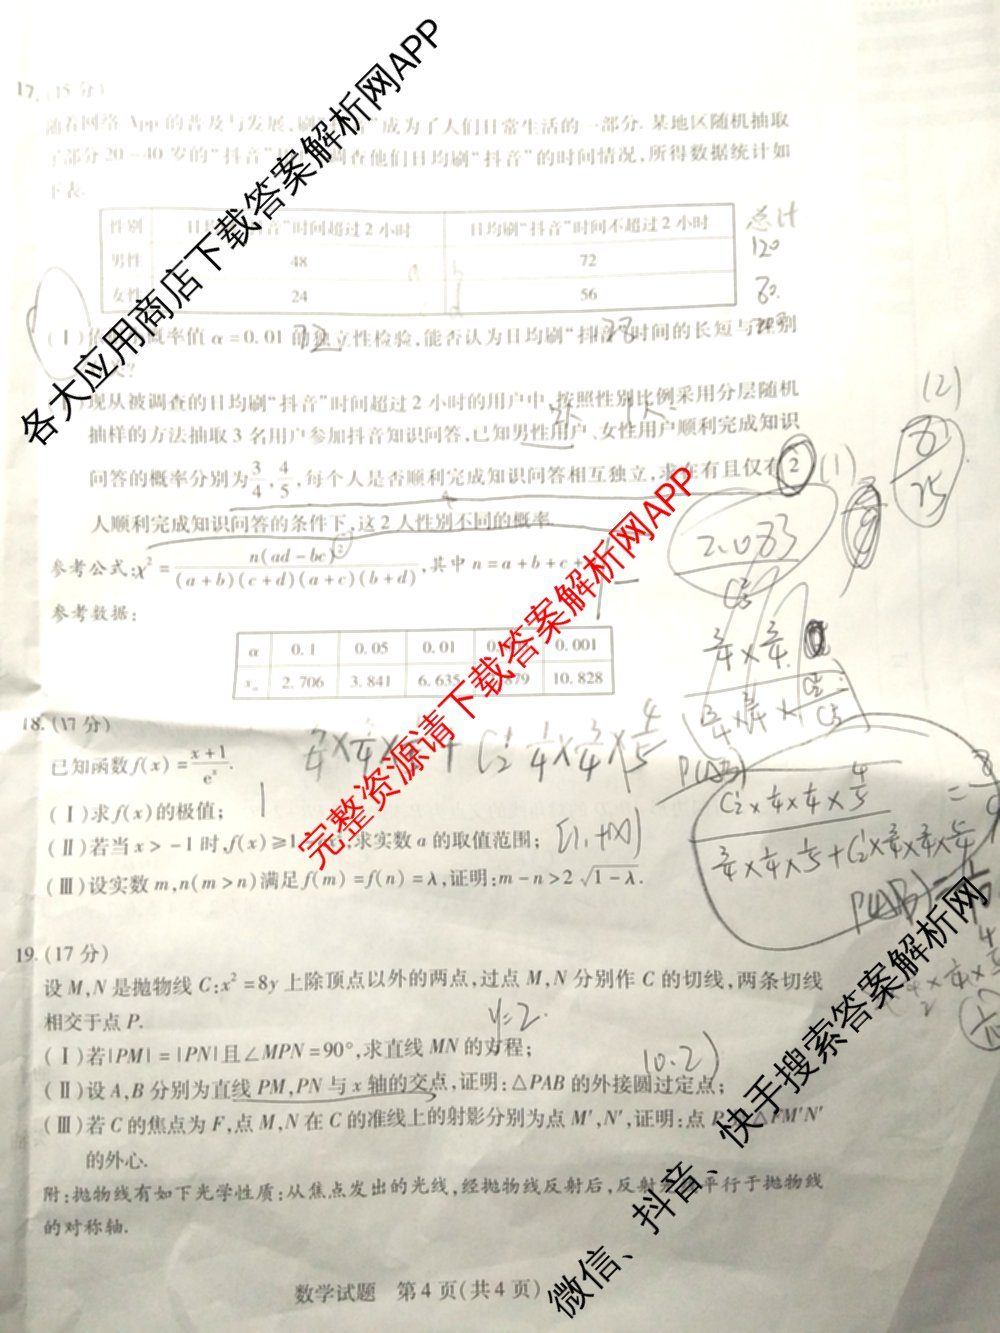 17.(15分)
随着网络App的普及与发展,刷 成为了人们日常生活的一部分.某地区随机抽取
了部分20-40岁的“抖音” 调查他们日均刷“抖音”的时间情况,所得数据统计如
下表.
性别 日均 音”时间超过2小时 日均刷“抖音”时间不超过2小时 总计
男性 48 72 120
女性 24 56 80
(Ⅰ) 概率值α=0.01的独立性检验,能否认为日均刷“抖音”时间的长短与性别
72 128
现从被调查的日均刷“抖音”时间超过2小时的用户中,按照性别比例采用分层随机
抽样的方法抽取3名用户参加抖音知识问答,已知男性用户、女性用户顺利完成知识
问答的概率分别为3/4,4/5,每个人是否顺利完成知识问答相互独立,求在有且仅有2
人顺利完成知识问答的条件下,这2人性别不同的概率.
(1) 2.083
(2) 8/15
参考公式:χ²=n(ad-bc)²/(a+b)(c+d)(a+c)(b+d),其中n=a+b+c+
参考数据:
α 0.1 0.05 0.01 0.001
xα 2.706 3.841 6.635 879 10.828
18.(17分)
已知函数f(x)=x+1/eˣ.
(Ⅰ)求f(x)的极值; 1
(Ⅱ)若当x>-1时,f(x)≥1 ,求实数a的取值范围; [1,+∞)
(Ⅲ)设实数m,n(m>n)满足f(m)=f(n)=λ,证明:m-n>2√1-λ.
19.(17分)
设M,N是抛物线C:x²=8y上除顶点以外的两点,过点M,N分别作C的切线,两条切线
相交于点P.
y=2.
(Ⅰ)若|PM|=|PN|且∠MPN=90°,求直线MN的方程;
(0.2)
(Ⅱ)设A,B分别为直线PM,PN与x轴的交点,证明:△PAB的外接圆过定点;
(Ⅲ)若C的焦点为F,点M,N在C的准线上的射影分别为点M′,N′,证明:点 △PM′N′
的外心.
附:抛物线有如下光学性质:从焦点发出的光线,经抛物线反射后,反射 平行于抛物线
的对称轴.
数学试题 第4页(共4页)
各大应用商店下载答案解析网APP
完整资源请下载答案解析网APP
微信、抖音、快手搜索答案解析网